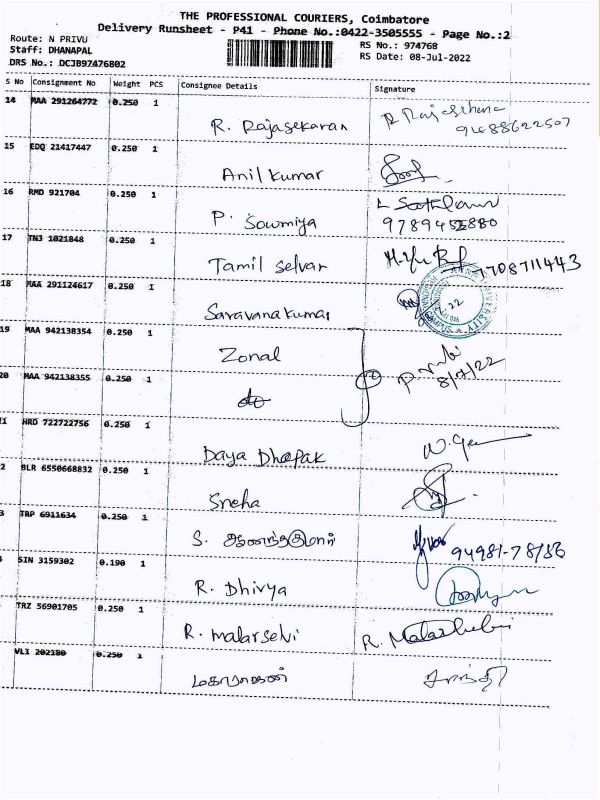 THE PROFESSIONAL COURIERS, Coimbatore
Delivery Runsheet - P41 - Phone No.:0422-3505555 - Page No.:2
Route: N PRIVU
RS No.: 974768
Staff: DHANAPAL
RS Date: 08-Jul-2022
DRS No.: DCJB97476802
S No Consignment No Weight PCS Consignee Details Signature
14 MAA 291264772 0.250 1 R. Rajasekaran
15 EDQ 21417447 0.250 1 Anil Kumar
16 RMD 921704 0.250 1 P. Sowmiya
17 TNJ 1021848 0.250 1 Tamil Selvan 7708711443
18 MAA 291124617 0.250 1 Saravanakumar
19 MAA 942138354 0.250 1 Zonal
8/7/22
20 MAA 942138355 0.250 1 do
1 HRD 722722756 0.250 1 Daya Dheepak
2 BLR 6550668832 0.250 1 Sneha
3 TRP 6911634 0.250 1 S. ஆனந்தகுமார்
SIN 3159302 0.190 1 R. Dhivya
TRZ 56901705 0.250 1 R. Malarselvi
VLI 202180 0.250 1
சாந்தி